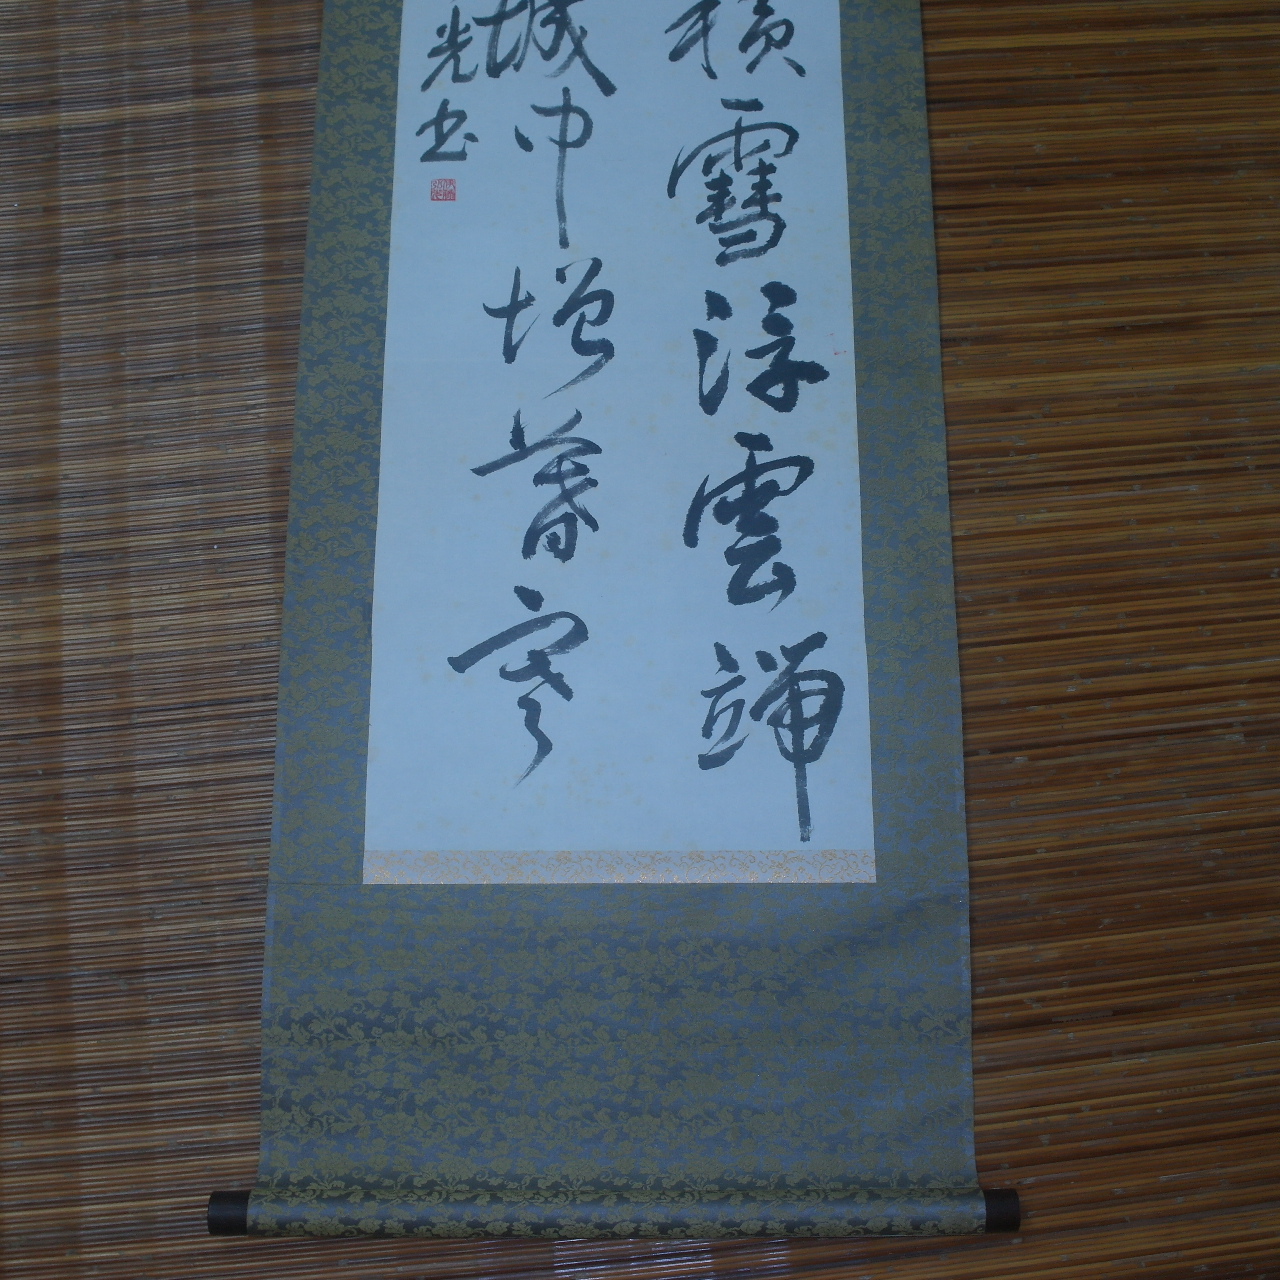 積雪浮雲端
城中增暮寒
光书